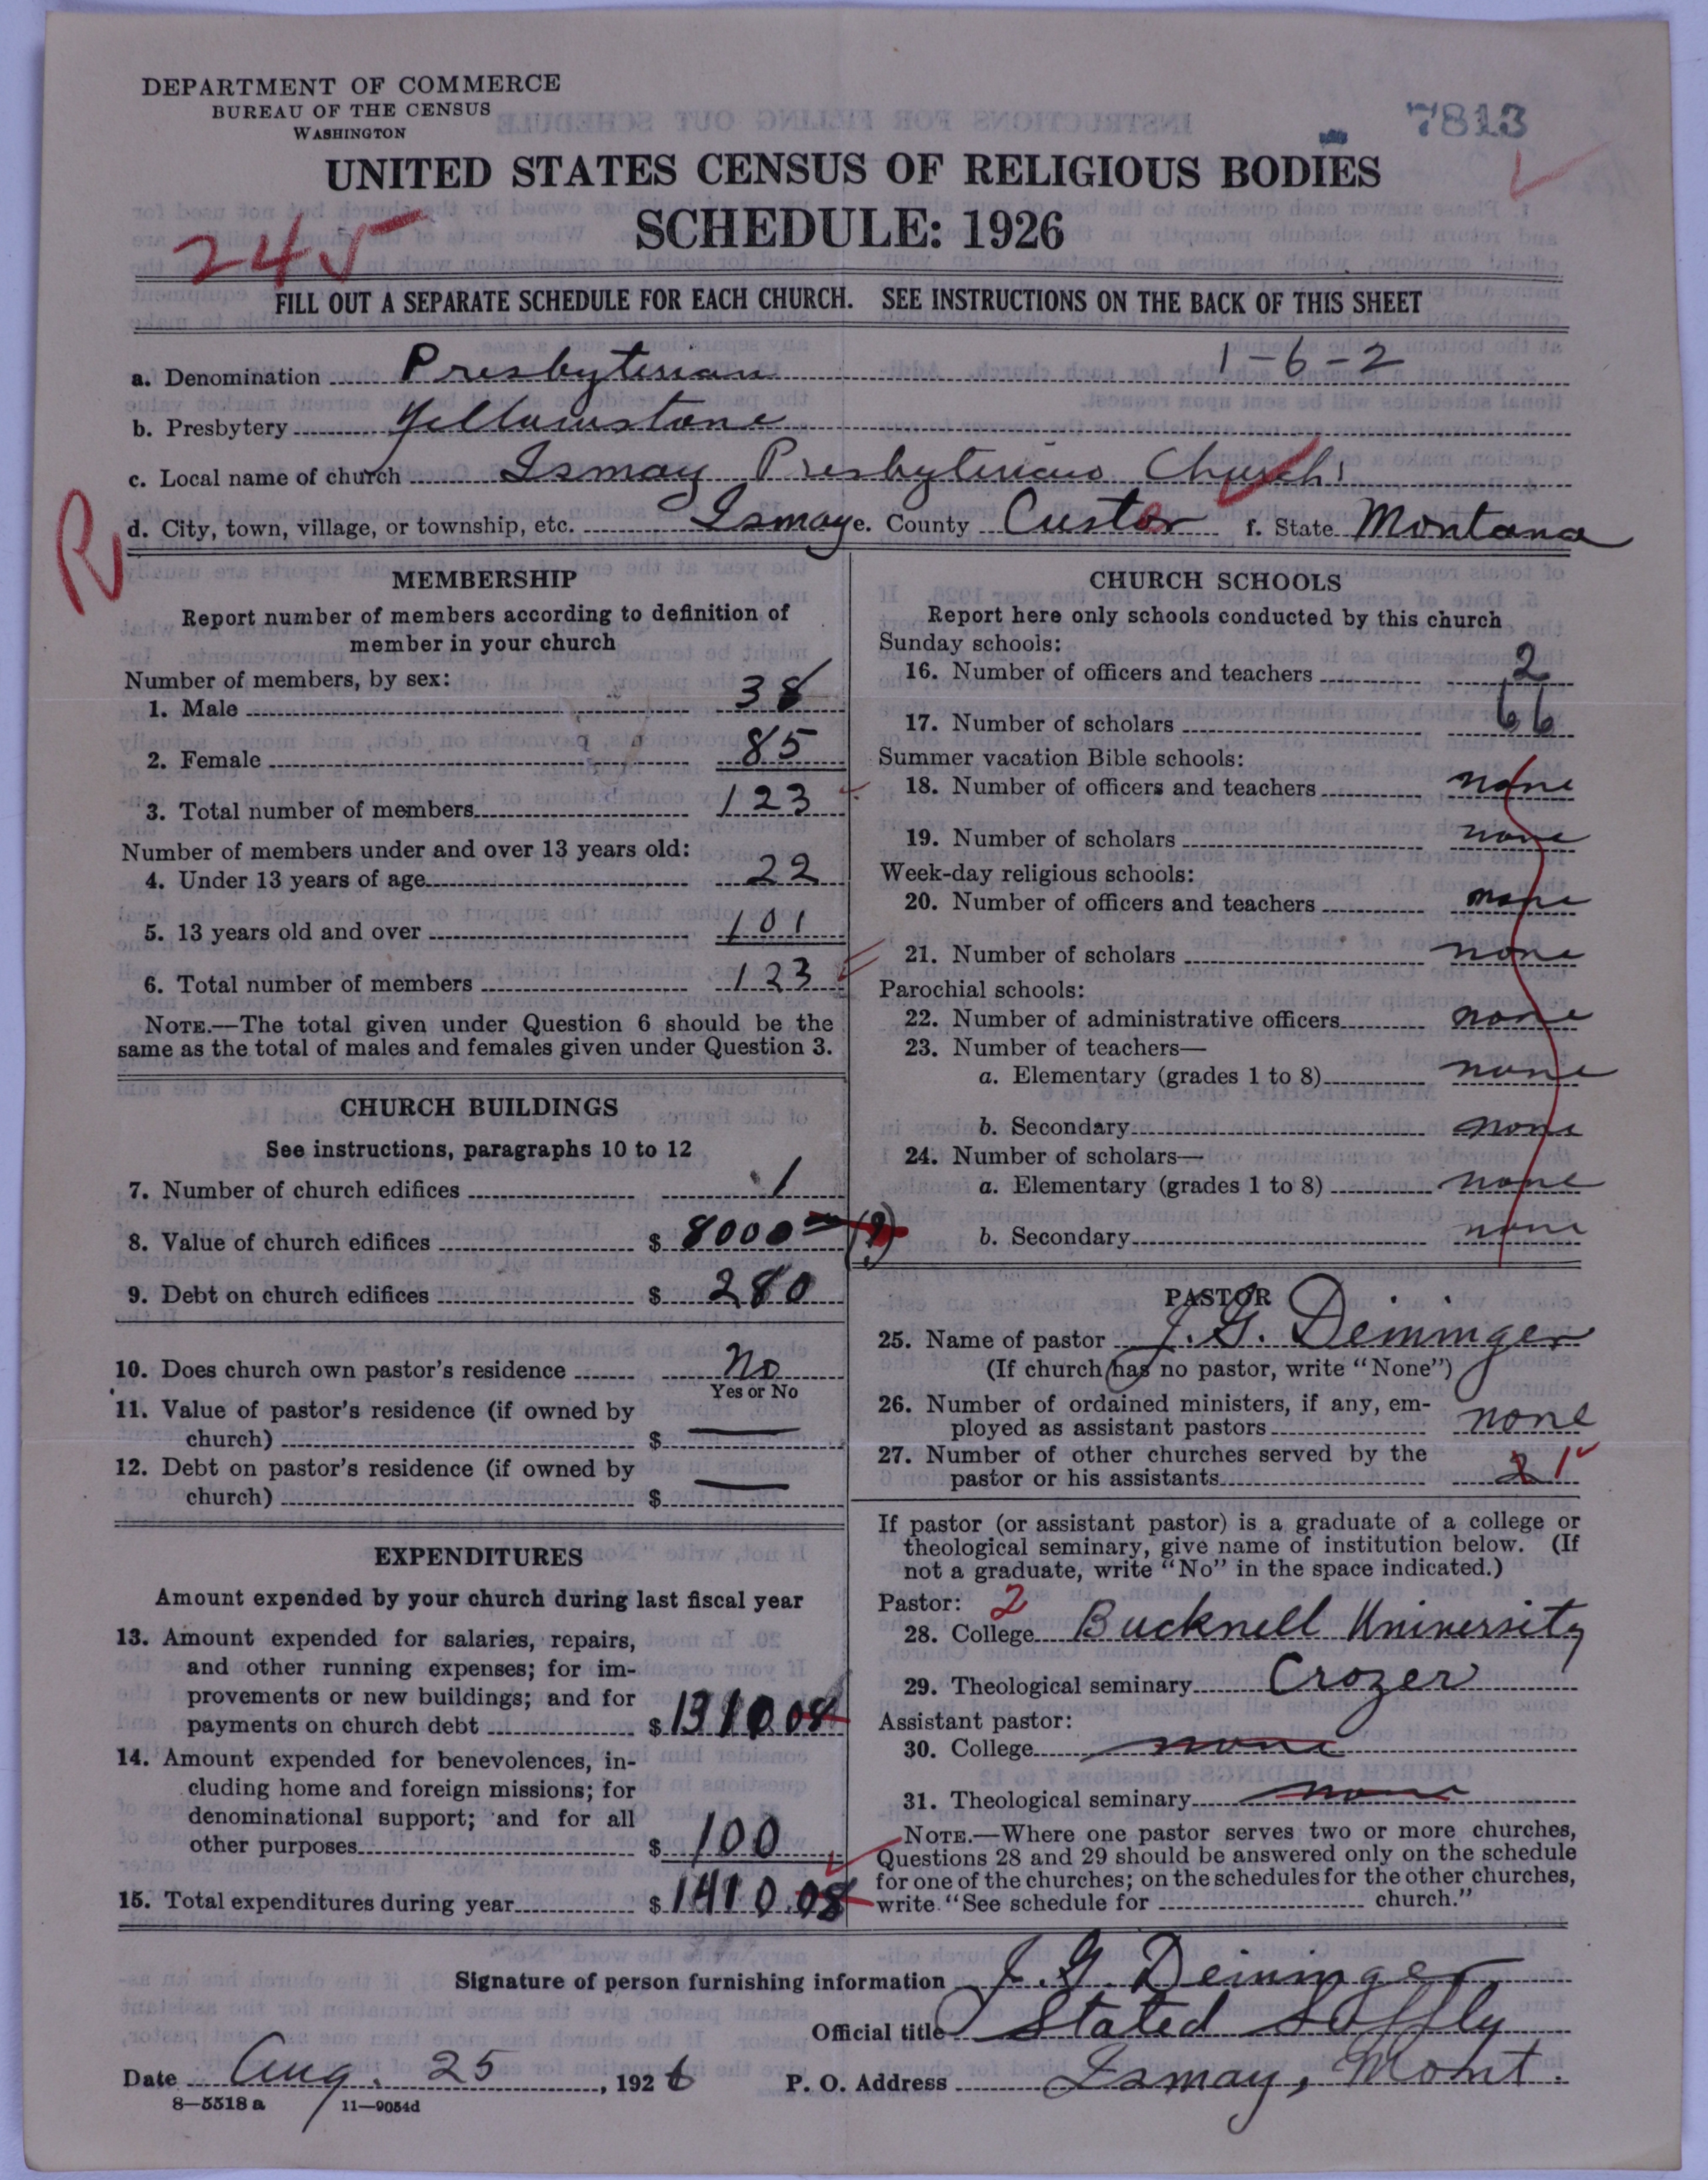 DEPARTMENT OF COMMERCE
BUREAU OF THE CENSUS
WASHINGTON
7813
UNITED STATES CENSUS OF RELIGIOUS BODIES
SCHEDULE: 1926
245
FILL OUT A SEPARATE SCHEDULE FOR EACH CHURCH. SEE INSTRUCTIONS ON THE BACK OF THIS SHEET
a. Denomination Presbyterian 1-6-2
b. Presbytery Yellowstone
c. Local name of church Ismay Presbyterian Church
R
d. City, town, village, or township, etc. Ismay e. County Custer f. State Montana
MEMBERSHIP
Report number of members according to definition of
member in your church
Number of members, by sex:
1. Male 38
2. Female 85
3. Total number of members 123
Number of members under and over 13 years old:
4. Under 13 years of age 22
5. 13 years old and over 101
6. Total number of members 123
NOTE.—The total given under Question 6 should be the
same as the total of males and females given under Question 3.
CHURCH BUILDINGS
See instructions, paragraphs 10 to 12
7. Number of church edifices 1
8. Value of church edifices $ 8000
9. Debt on church edifices $ 280
10. Does church own pastor's residence No
Yes or No
11. Value of pastor's residence (if owned by
church) $
12. Debt on pastor's residence (if owned by
church) $
EXPENDITURES
Amount expended by your church during last fiscal year
13. Amount expended for salaries, repairs,
and other running expenses; for im-
provements or new buildings; and for
payments on church debt $ 1310 08
14. Amount expended for benevolences, in-
cluding home and foreign missions; for
denominational support; and for all
other purposes $ 100
15. Total expenditures during year $ 1410.08
CHURCH SCHOOLS
Report here only schools conducted by this church
Sunday schools:
16. Number of officers and teachers 2
17. Number of scholars 66
Summer vacation Bible schools:
18. Number of officers and teachers none
19. Number of scholars none
Week-day religious schools:
20. Number of officers and teachers none
21. Number of scholars none
Parochial schools:
22. Number of administrative officers none
23. Number of teachers—
a. Elementary (grades 1 to 8) none
b. Secondary none
24. Number of scholars—
a. Elementary (grades 1 to 8) none
b. Secondary none
PASTOR
25. Name of pastor J. G. Deininger
(If church has no pastor, write "None")
26. Number of ordained ministers, if any, em-
ployed as assistant pastors none
27. Number of other churches served by the
pastor or his assistants 2 1
If pastor (or assistant pastor) is a graduate of a college or
theological seminary, give name of institution below. (If
not a graduate, write "No" in the space indicated.)
Pastor: 2
28. College Bucknell University
29. Theological seminary Crozer
Assistant pastor:
30. College none
31. Theological seminary none
NOTE.—Where one pastor serves two or more churches,
Questions 28 and 29 should be answered only on the schedule
for one of the churches; on the schedules for the other churches,
write "See schedule for church."
Signature of person furnishing information J. G. Deininger
Official title Stated Supply
Date Aug. 25, 1926 P. O. Address Ismay, Mont.
8—5518 a 11—9054d